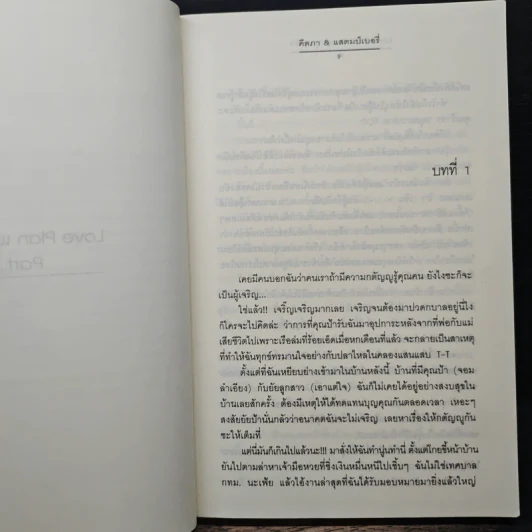 คีตภา & แสตมป์เบอรี่
บทที่ 1
เคยมีคนบอกฉันว่าคนเราถ้ามีความกตัญญูรู้คุณคน ยังไงซะก็จะ
เป็นผู้เจริญ...
ใช่แล้ว!! เจริ๊ญเจริญมากเลย เจริญจนต้องมาปวดกบาลอยู่นี่ไง
ก็ใครจะไปคิดล่ะ ว่าการที่คุณป้ารับฉันมาอุปการะหลังจากที่พ่อกับแม่
เสียชีวิตไปเพราะเรือล่มที่ร้อยเอ็ดเมื่อหกเดือนที่แล้ว จะกลายเป็นสาเหตุ
ที่ทำให้ฉันทุกข์ทรมานใจอย่างกับปลาไหลในคลองแสนแสบ T-T
ตั้งแต่ที่ฉันเหยียบย่างเข้ามาในบ้านหลังนี้ บ้านที่มีคุณป้า (จอม
ลำเอียง) กับยัยลูกสาว (เอาแต่ใจ) ฉันก็ไม่เคยได้อยู่อย่างสงบสุขใน
บ้านเลยสักครั้ง ต้องมีเหตุให้ได้ทดแทนบุญคุณกันตลอดเวลา เหอะๆ
สงสัยยัยป้านั่นกลัวว่าอนาคตฉันจะไม่เจริญ เลยหาเรื่องให้กตัญญูกัน
ซะให้เต็มที่
แต่นี่มันก็เกินไปแล้วนะ!!! มาสั่งให้ฉันทำนู่นทำนี่ ตั้งแต่โกยขี้หน้าบ้าน
ยันไปตามล่าหาเจ้ามือหวยที่ชิ่งเงินหมื่นหนีไปเชิ้บๆ ฉันไม่ใช่เทศบาล
กทม. นะเฟ้ย แล้วไอ้งานล่าสุดที่ฉันได้รับมอบหมายมายิ่งแล้วใหญ่
Love Plan
Part